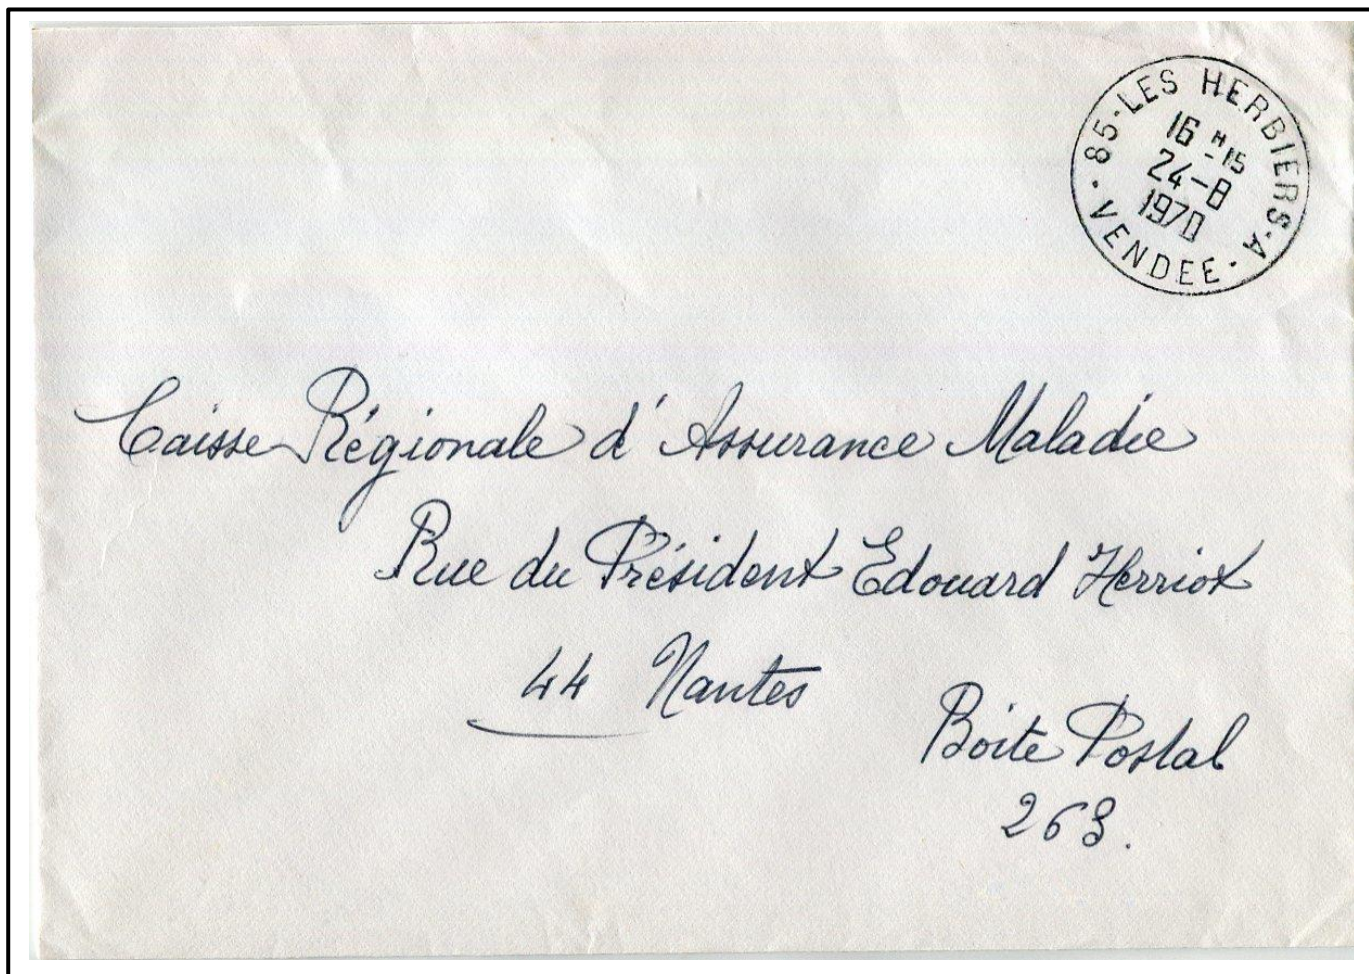 85-LES HERBIERS-A
16 H-15
24-8
1970
VENDEE
Caisse Régionale d'Assurance Maladie
Rue du Président Edouard Herriot
44 Nantes
Boite Postal
263.